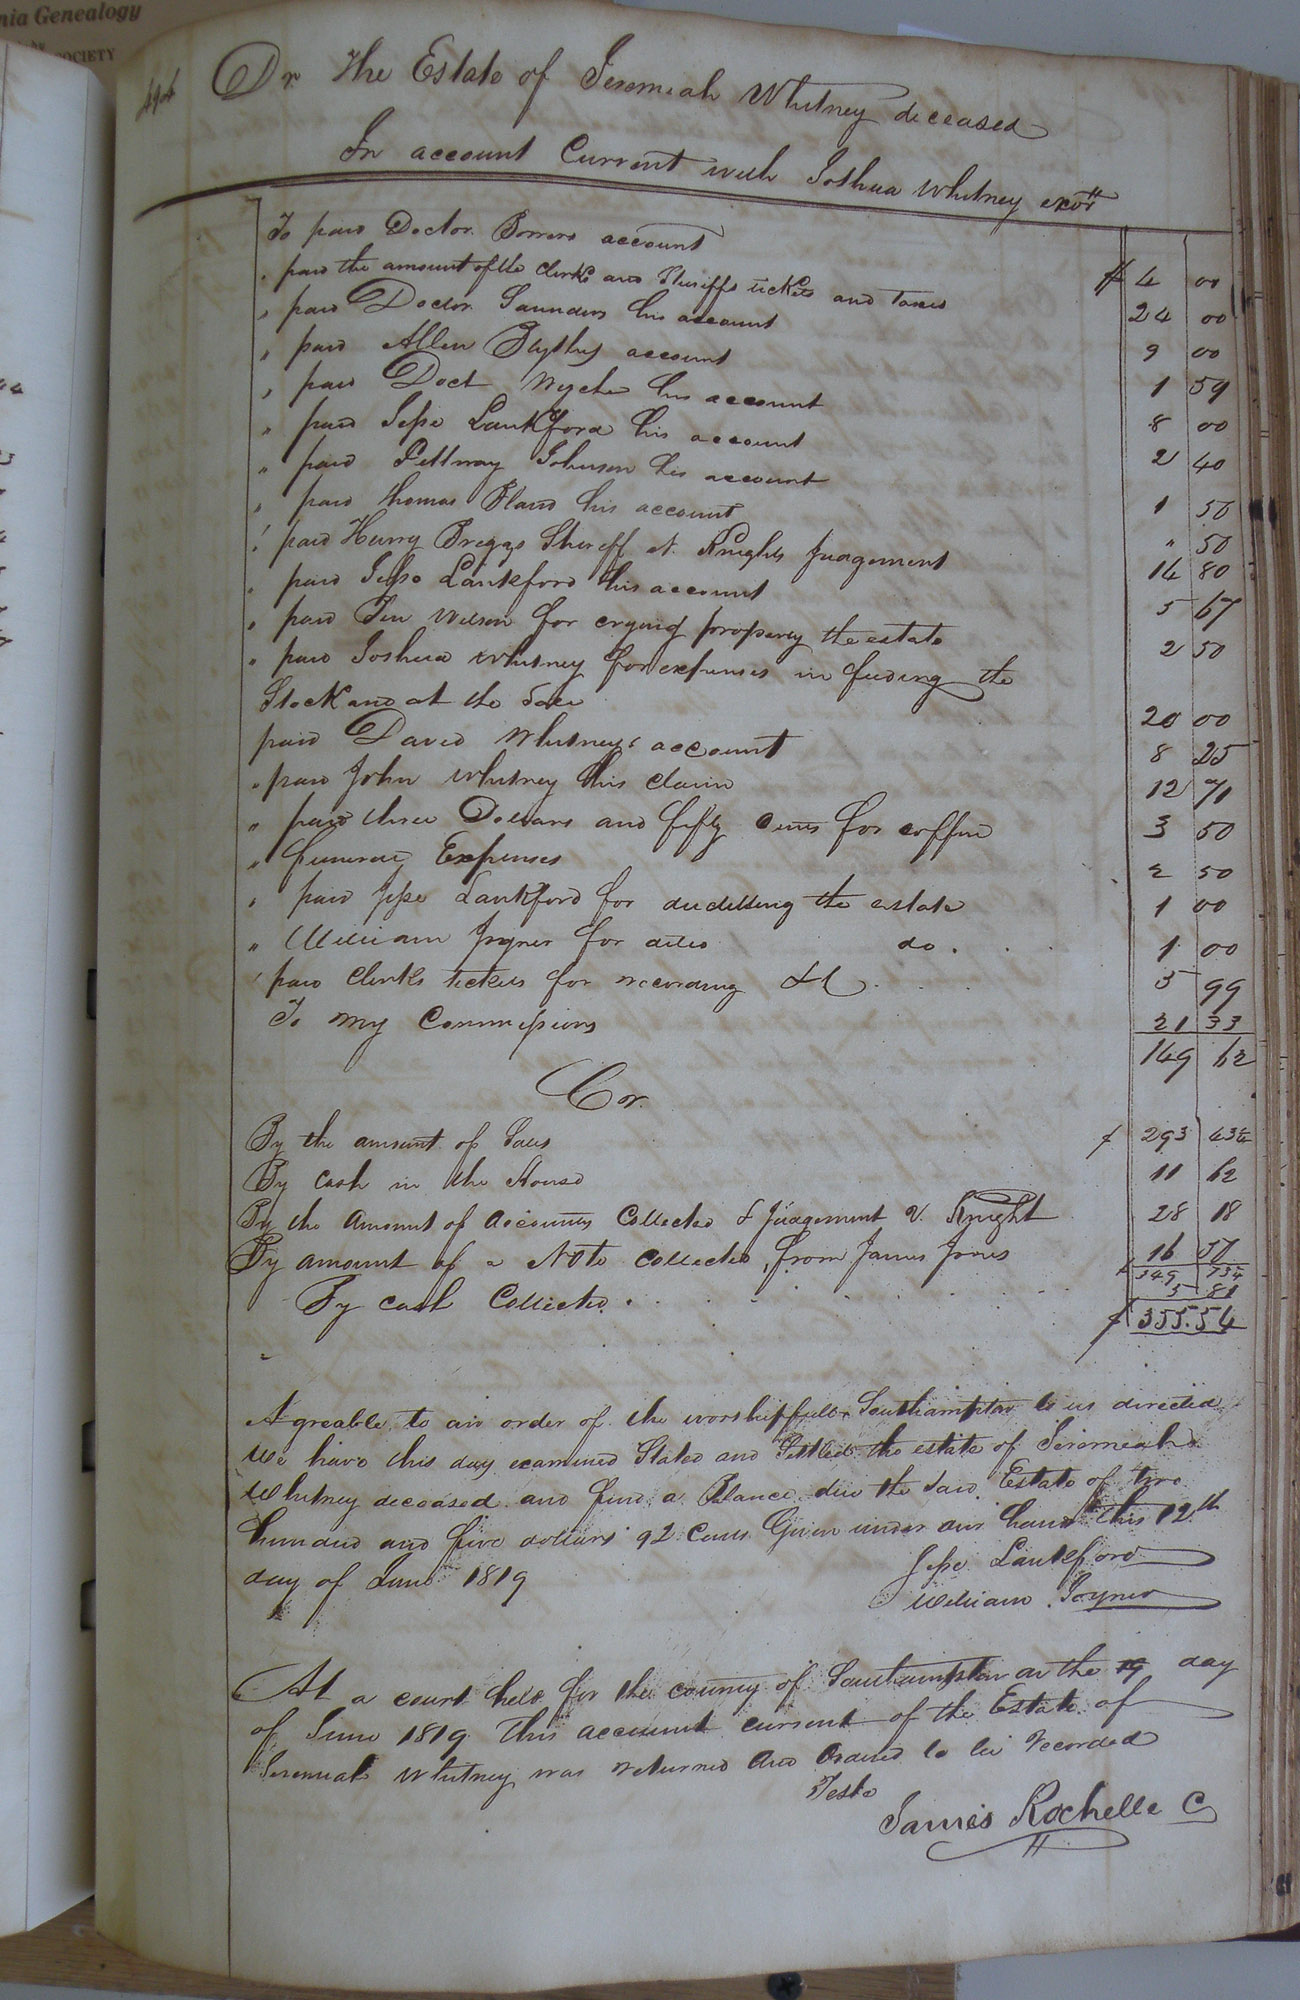 nia Genealogy
SOCIETY
494
Dr. The Estate of Jeremiah Whitney deceased
In account Current with Joshua Whitney exor
To paid Doctor account $ 4 00
" paid the amount of the Clerks and Sheriffs tickets and taxes 24 00
" paid Doctor Saunders his account 9 00
" paid Allen Blythes account 1 59
" paid Doct Wyche his account 8 00
" paid Jesse Lankford his account 2 40
" paid Pettway Johnson his account 1 50
" paid Thomas Bland his account " 50
" paid Henry Briggs Sheriff at Knights Judgement 14 80
" paid Jesse Lankford his account 5 67
" paid Wilson for crying property the estate 2 50
" paid Joshua Whitney for expenses in feeding the
Stock and at the Sale 20 00
paid David Whitneys account 8 25
" paid John Whitney his claim 12 71
" paid three Dollars and fifty cents for coffin 3 50
" funeral Expenses 2 50
" paid Jesse Lankford for auditting the estate 1 00
" William Joyner for ditto do. 1 00
" paid Clerks tickets for recording &c 5 99
To my Commissions 21 33
149 62
Cr.
By the amount of Sales $ 293
By cash in the House 11 62
By the Amount of Accounts Collected & Judgement V. Knight 28 18
By amount of a Note collected from James Jones 16 57
349 73¼
By cash Collected. 5 81
$ 355.54
Agreable to an order of the worshipfull Southampton to us directed
We have this day examined Stated and Settled the estate of Jeremiah
Whitney deceased and find a Balance due the said Estate of two
hundred and five dollars 92 Cents Given under our hand this 12th
day of June 1819
Jesse Lankford
William Joyner
At a court held for the county of Southampton on the 19 day
of June 1819 This account current of the Estate of
Jeremiah Whitney was returned and Ordered to be recorded
Teste
James Rochelle C